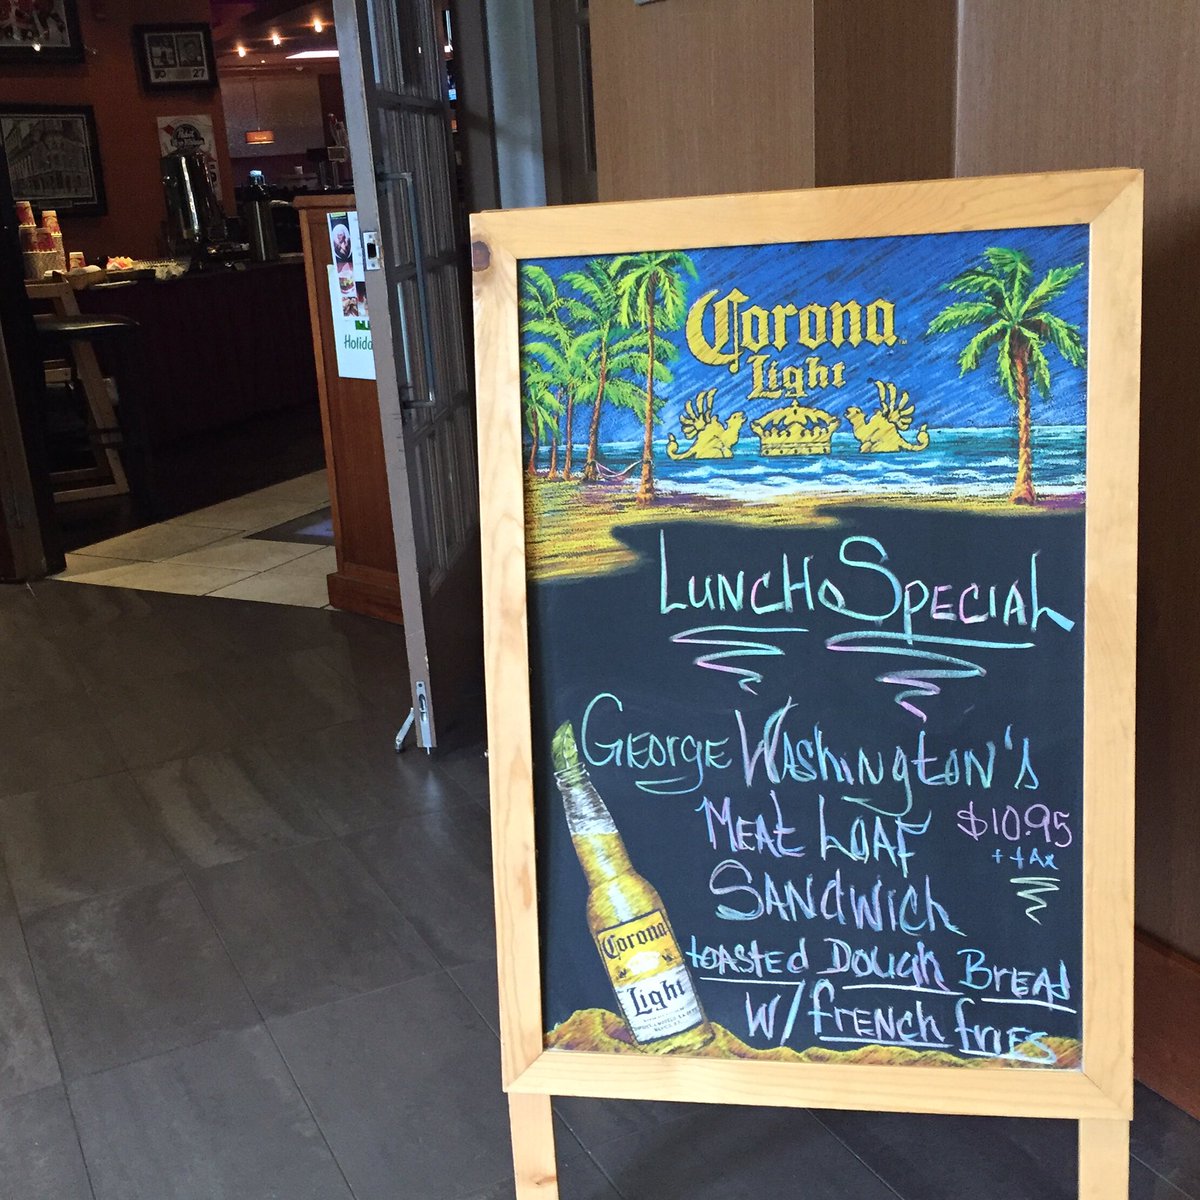 Corona
Light
LUNCH SPECIAL
GEOrGE WAShINgtON'S
MEAt LOAF $10.95
+ tAx
SANdWich
tOAStEd DOugh BrEAd
W/ frENch friES
Corona
Light
Holida
27
Pabst